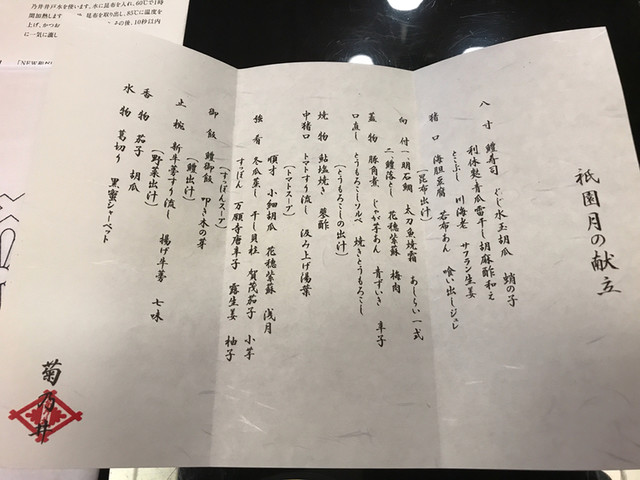 祇園月の献立
八寸 鱧寿司 ぐじ水玉胡瓜 蛸の子
利休麩青瓜雷干し胡麻酢和え
とこぶし 川海老 サフラン生姜
猪口 海胆豆腐 若布あん 喰い出しジュレ
(昆布出汁)
向付 一 明石鯛 太刀魚焼霜 あしらい一式
二 鱧落とし 花穂紫蘇 梅肉
蓋物 豚角煮 じゃが芋あん 青ずいき 辛子
口直し とうもろこしソルベ 焼きとうもろこし
(とうもろこしの出汁)
焼物 鮎塩焼き 蓼酢
中猪口 トマトすり流し 汲み上げ湯葉
(トマトスープ)
強肴 順才 小細胡瓜 花穂紫蘇 浅月
冬瓜蒸し 干し貝柱 賀茂茄子 小芋
すっぽん 万願寺唐辛子 露生姜 柚子
(すっぽんスープ)
御飯 鱧御飯 叩き木の芽
(鱧出汁)
止椀 新牛蒡すり流し 揚げ牛蒡 七味
(野菜出汁)
香物 茄子 胡瓜
水物 葛切り 黒蜜シャーベット
菊乃井
乃井井戸水を使います。水に昆布を入れ、60℃で1時
間加熱します 昆布を取り出し、85℃に温度を
上げ、かつお の後、10秒以内
に一気に濾し